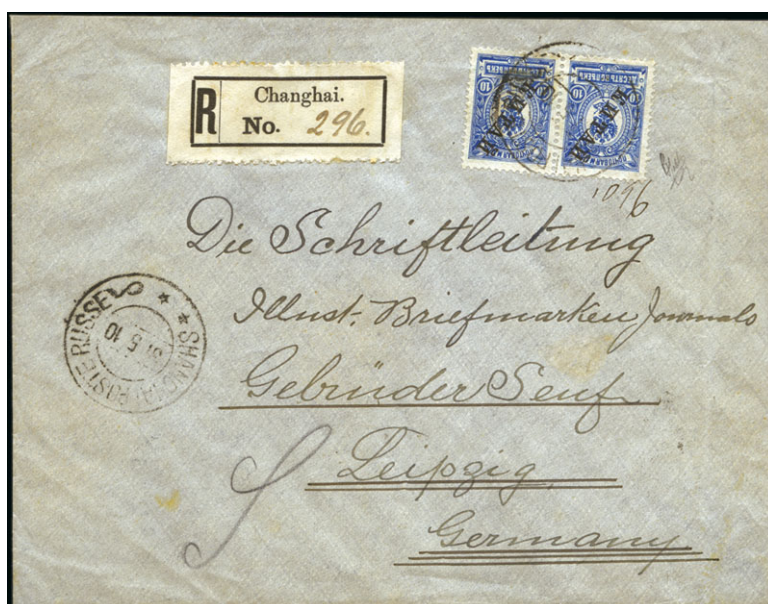 R
Changhai.
No. 296.
10
10
КИТАЙ
КИТАЙ
Die Schriftleitung
Illust. Briefmarken Journals
Gebrüder Senf
Leipzig
Germany
SHANGHAI POSTE RUSSE
31 5 10